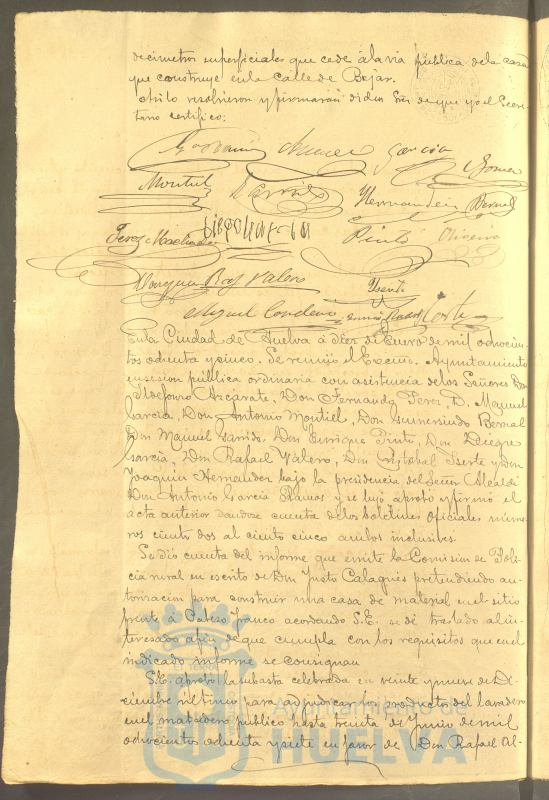 decimetros superficiales que cede á la via pública de la casa
que construye en la calle de Bejar.
Asi lo resolvieron y firmaran dichos Sres. de que yo el Secre-
tario certifico:
Garcia
Montiel Garrido Hernandez Bernal
Perez Pinto Oliveira
Joaquin Rafl Valero Yserte
Miguel Cordero Cortes
En la Ciudad de Huelva á diez de Enero de mil ochocien-
tos ochenta y cinco. Se reunió el Excmo. Ayuntamiento
en sesion pública ordinaria con asistencia de los Señores Don
Ildefonso Azcárate, Don Fernando Perez, D. Manuel
Garcia, Don Antonio Montiel, Don Gumersindo Bernal
Don Manuel Garrido, Don Enrique Pinto, Don Diego
Garcia, Don Rafael Valero, Don Cristobal Yserte y Don
Joaquin Hernandez bajo la presidencia del Señor Alcalde
Don Antonio Garcia Ramos y se leyó aprobó y firmó el
acta anterior dandose cuenta de los boletines oficiales nume-
ros ciento dos al ciento cinco ambos inclusives.
Se dió cuenta del informe que emite la Comision de Poli-
cia rural en escrito de Don Justo Calagues pretendiendo au-
torizacion para construir una casa de material en el sitio
frente á acordando S.E. se dé traslado al in-
teresado á fin de que cumpla con los requisitos que en el
indicado informe se consignan
S.E. aprobó la subasta celebrada en veinte y nueve de Di-
ciembre último para adjudicar los productos del lavadero
en el matadero público hasta treinta de Junio de mil
ochocientos ochenta y siete en favor de Don Rafael Al-
Ayuntamiento de
HUELVA